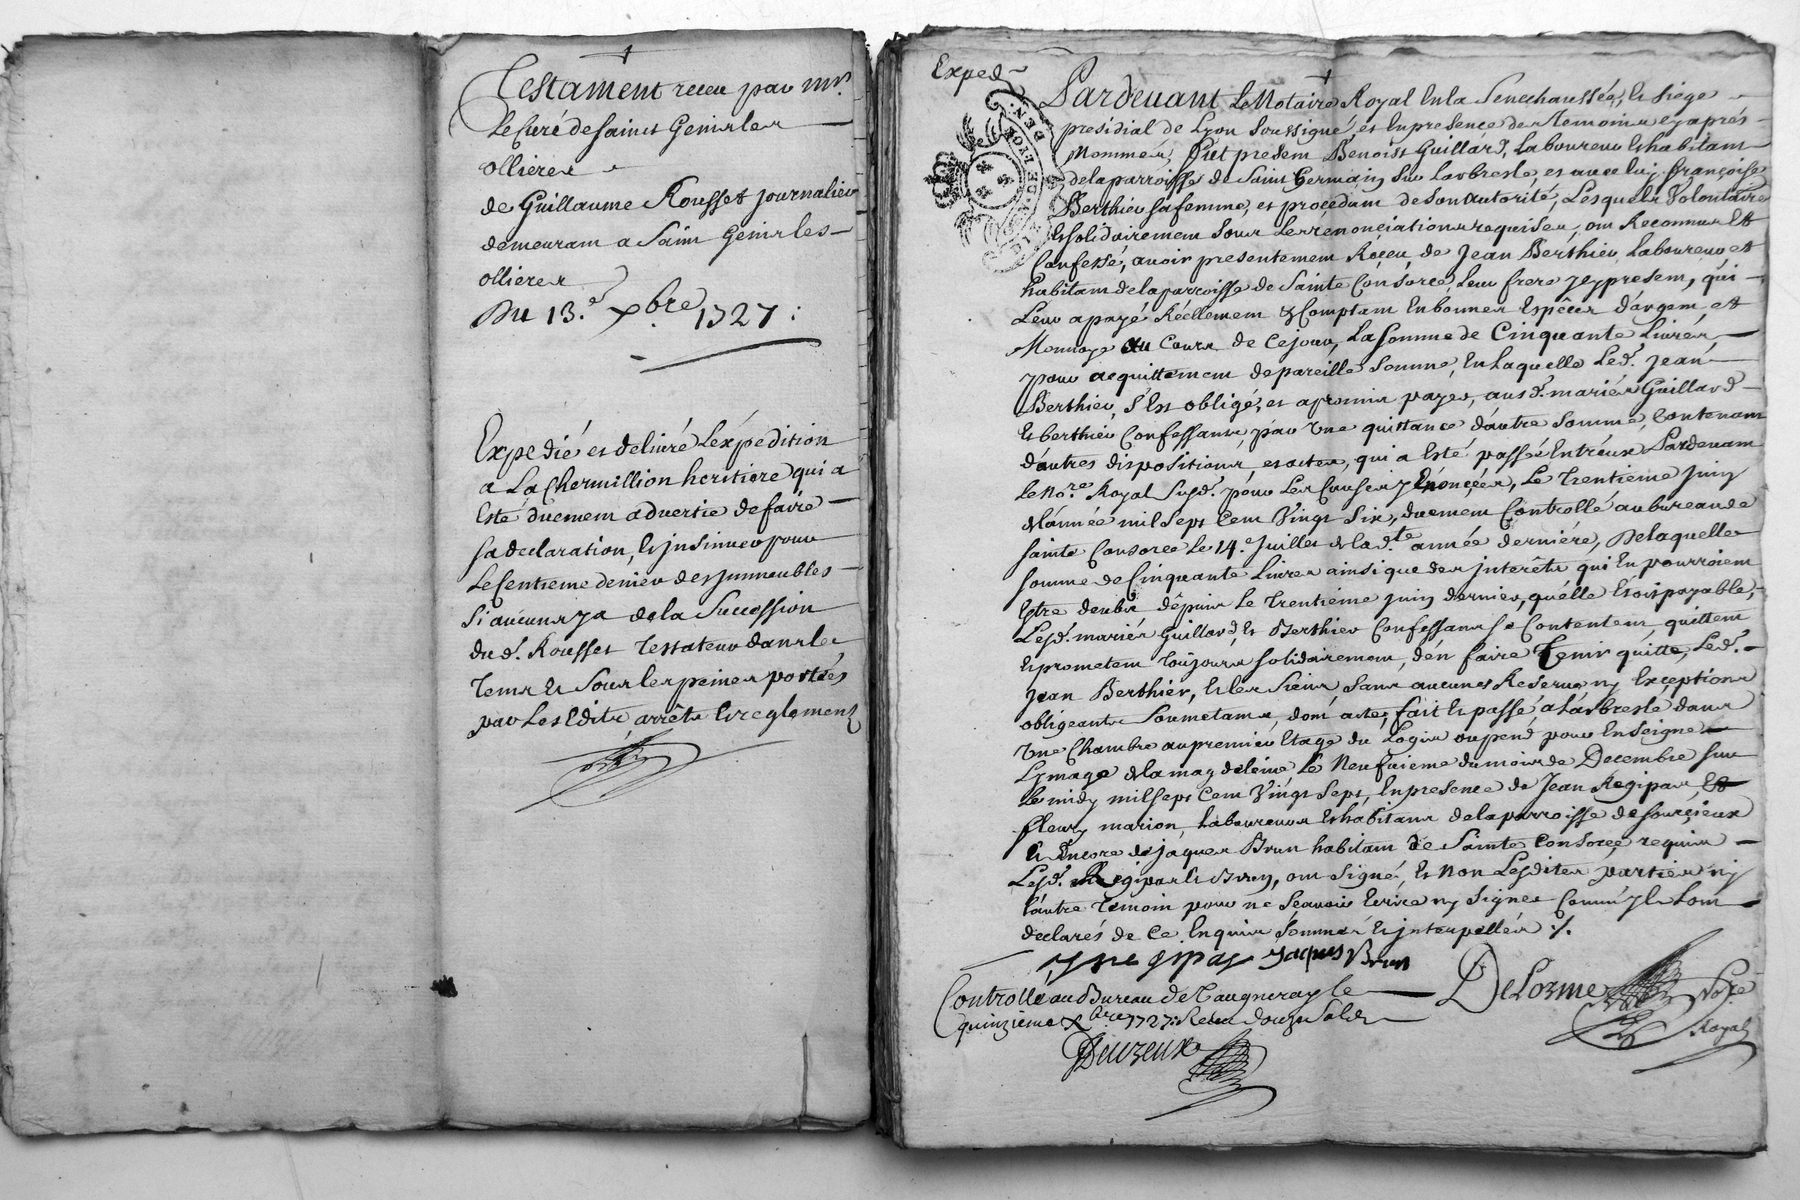 Testament receu par mr.
Le Curé de Saint Genis les
ollieres
de Guillaume Rousset journalier
demeurant a Saint Genis les
ollieres
Du 13.e xbre 1727:
Expedié et deliuré Lexpédition
a La Chermillion heritiere qui a
Esté duement aduertie de faire
sa declaration, Et jnsinuer pour
Le Centieme denier des jmmeubles
Si aucuns ya de la Succession
du d. Rousset Testateur dans le
Tems Et Sous les peines portées
par Les Edits, arrêts Et reglements
Exped
GEN. DE LYON
Pardeuant Le Notaire Royal En la Senechaussée, Et siege
presidial de Lyon Soussigné, et En presence des Temoins cy aprés
Nommés, fut present Benoist Guillard, Laboureur Et habitant
de la parroisse de Saint Germain Sur Larbresle, et auec luy françoise
Berthier sa femme, et procedant de Son autorité, Lesquels Volontaire
Et solidairement Sous Les rénonçiations requises, ont Reconnus Et
Confessé, auoir presentement Reçeu, de Jean Berthier, Laboureur, et
habitant de la parroisse de Sainte Consorce, Leur frere jcy present, qui
Leur a payé Réellement & Comptant En bonnes Espêces d'argent, et
Monnoye au Cours de Ce jour, La Somme de Cinquante Livres,
pour acquittement de pareille Somme, En Laquelle Led. Jean
Berthier, S'Est obligé, et a promis payer, ausd. mariés Guillard
Et berthier Confessants, par Une quittance d'autre Somme, Contenant
d'autres dispositions, et actes, qui a Esté passé Entréux Pardeuant
le No.re Royal Susd. pour Les Causes y Enonçées, Le Trentieme Juin
de L'année mil Sept Cent Vingt Six, duement Controllé au bureau de
Sainte Consorce Le 14.e Juillet de la d.te année derniére, De laquelle
Somme de Cinquante Livres ainsi que des jnterêts qui En pourroient
Estre deubs dépuis Le Trentiéme juin dernier, qu'elle Etoit payable,
Lesd. mariés Guillard, Et Berthier Confessants Se Contentent, quittent
Et prometent Toûjours solidairement, d'en faire Tenir quitte, Led.
Jean Berthier, Et les Siens, Sans aucunes Reserues ny Exceptions
obligeants Soumetants, dont acte, fait Et passé a Larbresle dans
Une Chambre au premier Etage du Logis ou pend pour Enseigne
Lymage de la magdeleine, Le Neufuieme du mois de Decembre Sur
Le midy mil Sept Cent Vingt Sept, En presence de Jean Regipas, Et
fleury marion, Laboureurs Et habitans de la parroisse de Sourçieux
Et Encore de jaques Brun habitant de Sainte Consorce, requis
Lesd. Regipas Et Brun, ont Signé, Et Non Lesdites parties ny
l'autre Temoin pour ne Sçauoir Ecrire ny Signer Comm'jls L'ont
declarés de Ce Enquis Sommés Et jnterpellés ./.
regipas jacques Brun
DeLorme No.re
Royal
Controllé au Bureau de Vaugneray le
quinzieme xbre 1727: Receu douze Sols
Deuzeux